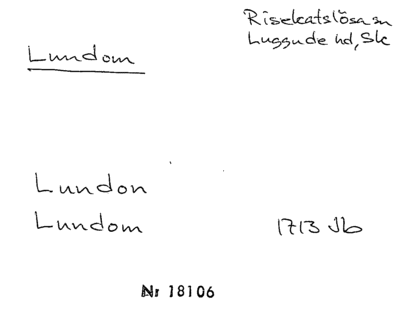 Risekatslösa sn
Luggude hd, Sk
Lundom
Lundon
Lundom 1713 Jb
Nr 18106